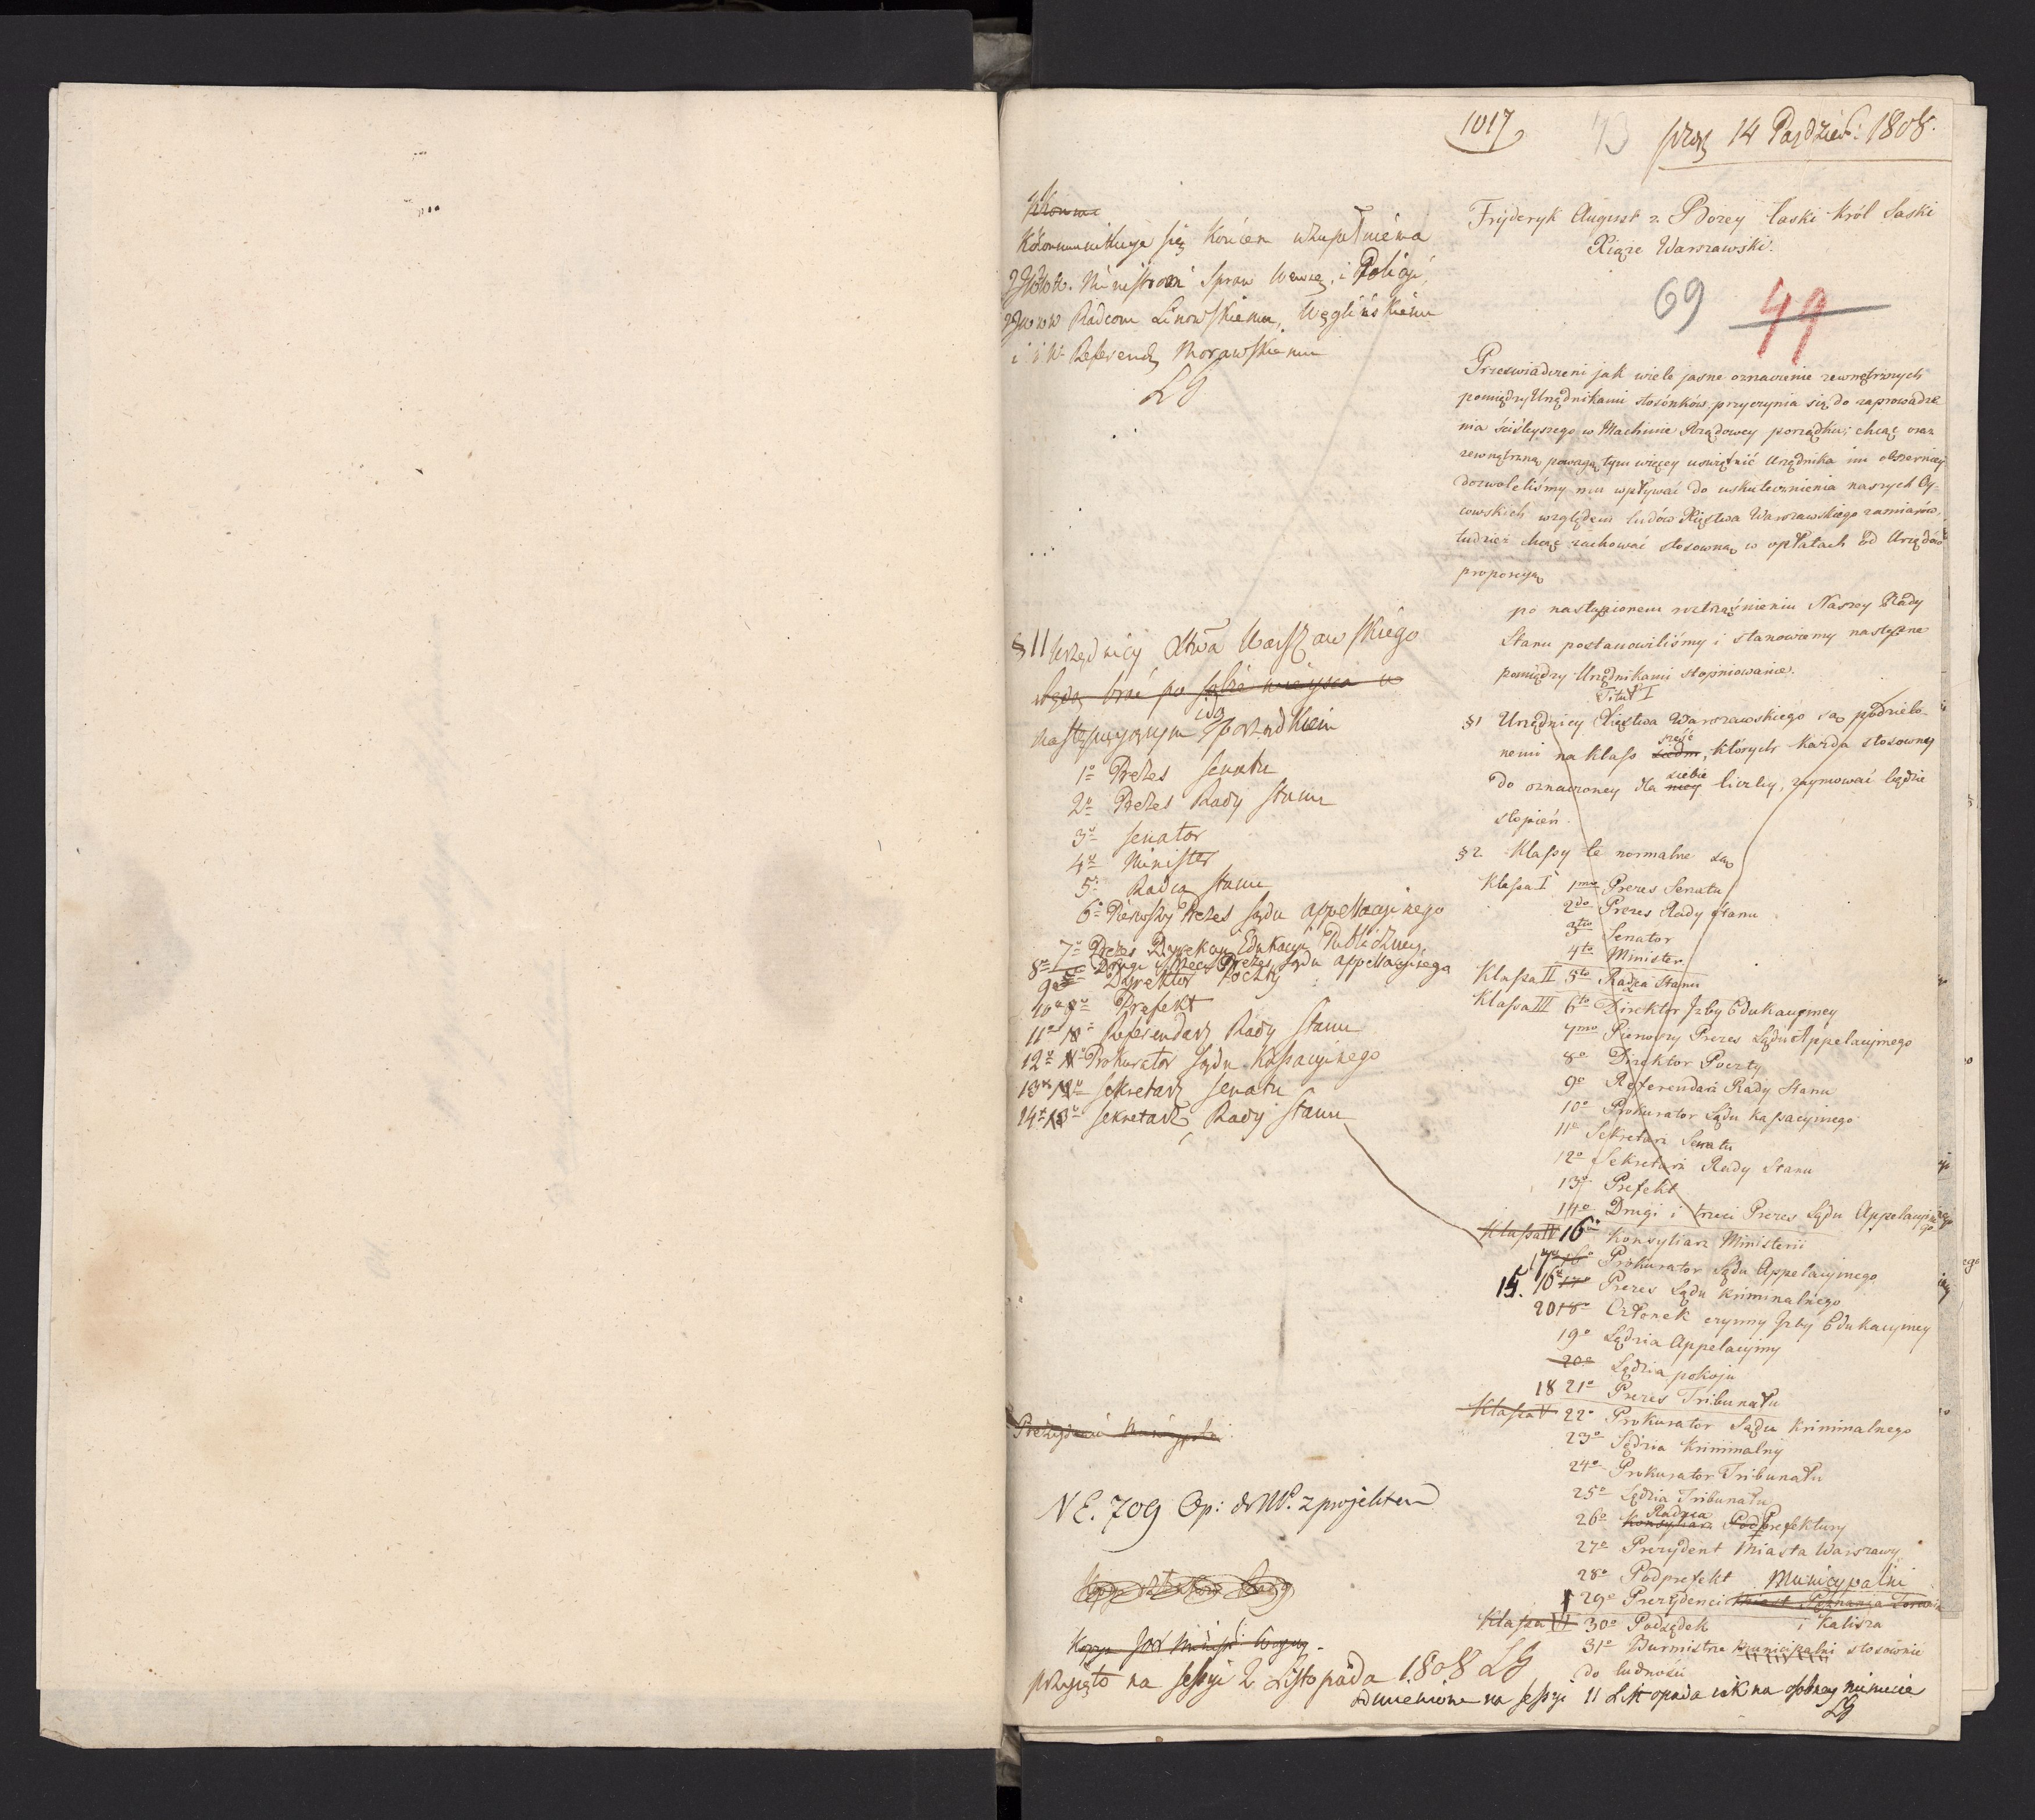 1017
73
prez 14 Paździer: 1808.
Kommunikuje się końcem uzupełnienia
JJWW. Ministrom Spraw Wewnę. i Policyi,
JJWW Radcom Linowskiemu, Węglińskiemu
i JW Referend Morawskiemu
LG
Fryderyk August z Bożey Łaski Król Saski
Xiąże Warszawski.
69 49
Przeświadczeni jak wiele jasne oznaczenie zewnętrznych
pomiędzy Urzędnikami stosónków przyczynia się do zaprowadze
nia ściśleyszego w Machinie Rządowey porządku; chcąc oraz
zewnętrzną powagą tym więcey uświetnić Urzędnika im obszerniey
dozwoliliśmy mu wpływać do uskutecznienia naszych Oy-
cowskich względem ludów Xięstwa Warszawskiego zamiarów,
tudzież chcąc zachować stosowną w opłatach od Urzędów
proporcyą
po nastąpionem roztrząśnieniu Naszey Rady
Stanu postanowiliśmy i stanowiemy następne
pomiędzy Urzędnikami stopniowanie.
Tituł I
§1 Urzędnicy Xięstwa Warszawskiego są podzielo-
nemi na klass sześć siedm, których każda stosownie
do oznaczoney dla siebie niey liczby, zaymować będzie
stopień.
§2. Klassy te normalne są
Klassa I 1mo Prezes Senatu
2do Prezes Rady Stanu
3tio Senator
4to Minister
Klassa II 5to Radca Stanu
Klassa III 6to Direktor Jzby Edukacyiney
7mo Pierwszy Prezes Sądu Appelacyinego
8o Direktor Poczty
9o Referendarz Rady Stanu
10o Prokurator Sądu Kassacyinego
11o Sekretarz Senatu
12o Sekretarz Rady Stanu
13o Prefekt
14o Drugi i trzeci Prezes Sądu Appelacyinego
Klassa IV 16o Konsyliarz Ministerii
17o 16o Prokurator Sądu Appelacyinego
15. 16o 17o Prezes Sądu Kriminalnego
20 18o Członek czynny Jzby Edukacyiney
19o Sędzia Appelacyiny
20o Sędzia pokoju
18 21o Prezes Tribunału
Klassa V 22o Prokurator Sądu Kriminalnego
23o Sędzia Kriminalny
24o Prokurator Tribunału
25o Sędzia Tribunału
26o Radzca Konsyliarz Podprefektury
27o Prezydent Miasta Warszawy
28o Podprefekt
29o Prezydenci Municypalni miast Poznania Torunia
i Kalisza
Klassa VI 30o Podsędek
31o Burmistrz municipalni stosownie
do ludności
§ 11 Urzędnicy Xtwa Warszawskiego
będą brać po sobie mieysca w
następującym idą porządkiem
1o Prezes Senatu
2o Prezes Rady Stanu
3o Senator
4o Minister
5o Radca Stanu
6o Pierwszy Prezes Sądu appellacyinego
7o Prezes Dyrekcyi Edukacyi Publiczney.
8o Drugi i trzeci Prezes Sądu appellacyinego
9o Dyrektor Poczty
10o 9o Prefekt
11o 10o Referendarz Rady Stanu
12o 11o Prokurator Sądu Kassacyinego
13o 12o Sekretarz Senatu
14o 13o Sekretarz Rady Stanu
N E. 709 Op: z projektem
przyięto na sessyi 2 Listopada 1808 LG
odmienione na sessyi 11 Listopada iak na osobney minucie
LG